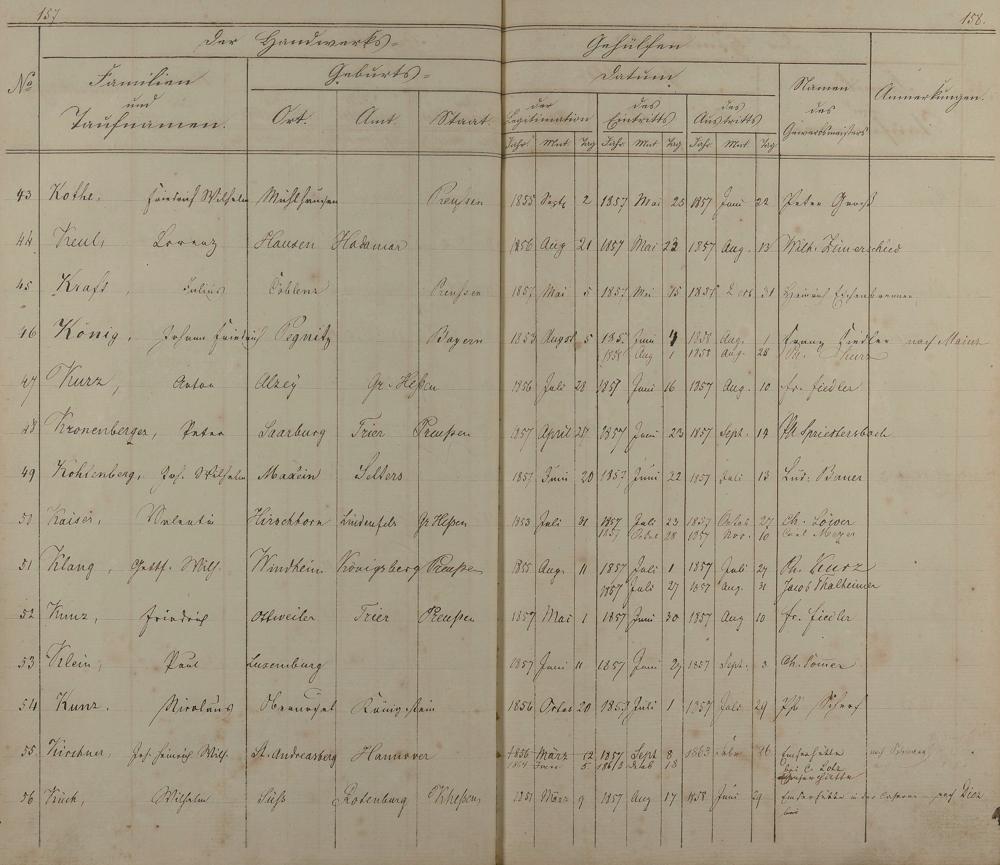 157
158.
Der Handwerks=
Gehülfen
No
Familien
und
Taufnamen.
Geburts=
Ort.
Amt.
Staat
Datum
der
Legitimation
des
Eintritts
des
Austritts
Jahr Mnt Tag Jahr Mnt Tag Jahr Mnt Tag
Namen
des
Gewerbsmeisters
Anmerkungen.
43 Kothe, Friedrich Wilhelm Mühlhausen Preußen 1855 Septb 2 1857 Mai 25 1857 Juni 22 Peter Groß
44 Keul, Lorenz Hausen Hadamar 1856 Aug 21 1857 Mai 23 1857 Aug. 13 Wilh.
45 Kraft, Julius Coblenz Preußen 1857 Mai 5 1857 Mai 1857 31 Heinrich
46 König, Johann Friedrich Pegnitz Bayern 1853 August 5 Juni 4 1858 Aug. 1 Franz Fiedler nach Mainz
1858 Aug 1 1858 Aug. 28 Ph. Kurz
47 Kurz, Anton Alzey Gr. Heßen 1856 Juli 28 1857 Juni 16 1857 Aug. 10 Fr. Fiedler
48 Kronenberger, Peter Saarburg Trier Preußen 1857 April 25 1857 Juni 23 1857 Sept. 14 Spriestersbach
49 Kohlenberg, Joh. Wilhelm Maxsein Selters 1857 Juni 20 1857 Juni 22 1857 Juli 13 Lud: Bauer
50 Kaiser, Valentin Hirschhorn Lindenfels Gr Heßen 1853 Juli 31 1857 Juli 23 1857 Octob 27 Ch. Löwer
1857 Octob 28 1857 Nov. 10 Carl Meyer
51 Klang, Gottf. Wilh. Windheim Königsberg Preußen 1855 Aug. 11 1857 Juli 1 1857 Juli 27 Ph. Kurz
1857 Juli 27 1857 Aug. 31 Jacob Thalheimer
52 Kunz, Friedrich Ottweiler Trier Preußen 1857 Mai 1 1857 Juni 30 1857 Aug 10 Fr. Fiedler
53 Klein, Paul Luxemburg 1857 Juni 11 1857 Juni 29 1857 Sept. 3 Ch. Sommer
54 Kunz. Nicolaus Oberursel Königstein 1856 Octob 20 1857 Juli 1 1857 Juli 29 Scherf
55 Kirschner, Joh. Heinrich Wilh. St. Andreasberg Hannover 1856 März 12 1857 Sept 8 1863 Febr 16 Emserhütte nach
5 18 bei C. Lotz
56 Kuck, Wilhelm Süß Rotenburg Kheßen 1851 März 9 1857 Aug 17 1858 Juni 29 Emserhütte nach Diez